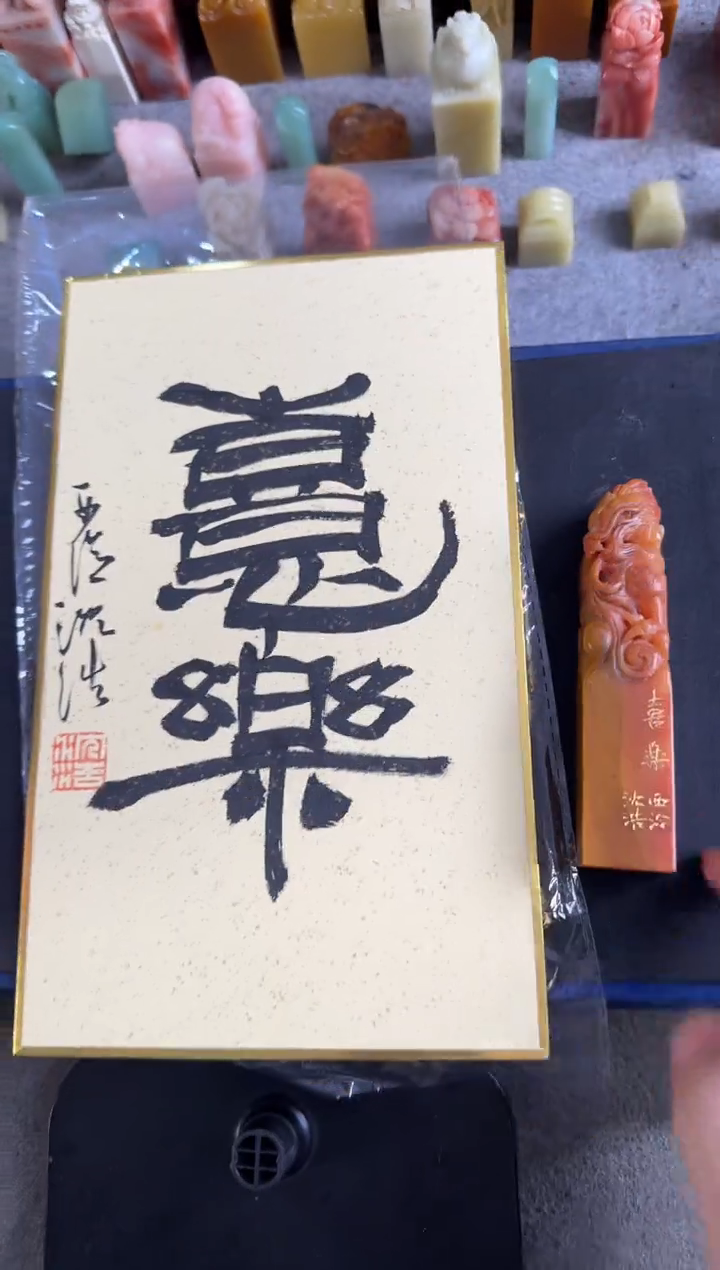 憙樂
西泠沈浩
喜樂
西泠
沈浩